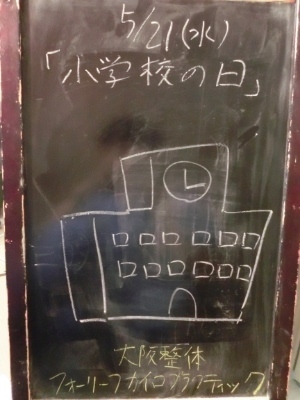 5/21(水)
「小学校の日」
大阪整体
フォーリーフカイロプラクティック